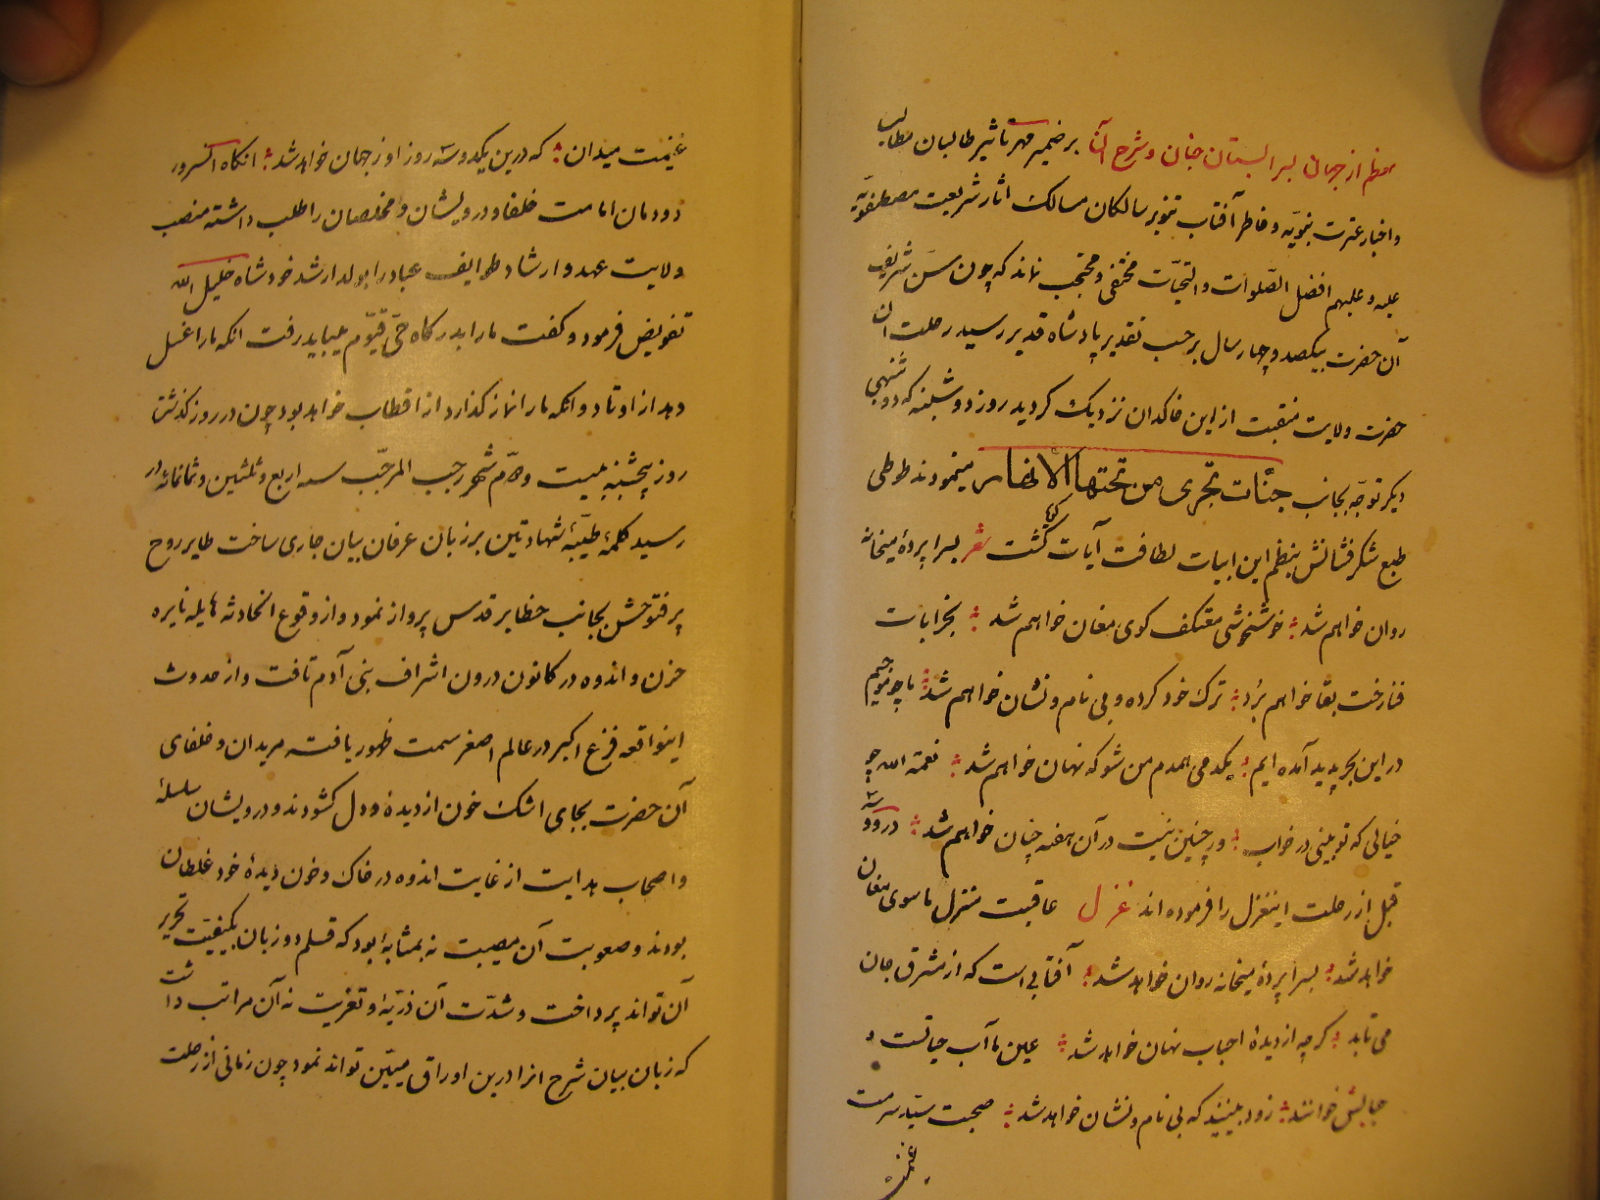 معظم از جهان بسرابستان جنان وشرح آن بر ضمیر مهر تاثیر طالبان مطالب
واخبار عترت نبویّه وخاطر آفتاب تنویر سالکان مسالک آثار شریعت مصطفویّه
علیه وعلیهم افضل الصّلوات والتحیّات مختفی ومحتجب نماند که چون سنّ شریف
آن حضرت بیکصد وچهار سال بر حسب تقدیر پادشاه قدیر رسید رحلت آن
حضرت ولایت منقبت از این خاکدان نزدیک کردید روز دوشنبه که
دیکر توجّه بجانب جنّات تجری من تحتها الانهار مینمودند طوطی
طبع شکرفشانش بنظم این ابیات لطافت آیات کویا کشت شعر بسراپردهٔ میخانه
روان خواهم شد خوشخوشی معتکف کوی مغان خواهم شد بخرابات
فنا رخت بقا خواهم برد ترک خود کرده و بی نام ونشان خواهم شد ما چو موجیم
در این بحر پدید آمده ایم یکدمی همدم من شو که نهان خواهم شد نعمة الله چو
خیالی که تو بینی در خواب ور چنین نیست در آن هفته چنان خواهم شد در دو سه
قبل از رحلت اینغزل را فرموده اند غزل عاقبت منزل ما سوی مغان
خواهد شد بسراپردهٔ میخانه روان خواهد شد آفتابی است که از مشرق جان
می تابد کرچه از دیدهٔ احباب نهان خواهد شد عین ما آب حیاتست و
حبابش خوانند زود بینند که بی نام ونشان خواهد شد صحبت سیّد سرمست
غنیمت
غنیمت میدان که درین یکدوسه روز او ز جهان خواهد شد انکاه آنسرور
دودمان امامت خلفا ودرویشان ومخلصان را طلب داشته منصب
ولایت عهد وارشاد طوایف عباد را بولد ارشد خود شاه خلیل الله
تفویض فرمود وکفت ما را بدرکاه حیّ قیّوم میباید رفت انکه ما را غسل
دهد از اوتاد وانکه ما را نماز کذارد از اقطاب خواهد بود چون در روز کذشت
روز پنجشنبه بیست وسیّم شهر رجب المرجّب سنه اربع وثلثین وثمانمائه در
رسید کلمهٔ طیّبهٔ شهادتین بر زبان عرفان بیان جاری ساخت طایر روح
پرفتوحش بجانب حظایر قدس پرواز نمود واز وقوع انحادثه هایله نایره
حزن واندوه در کانون درون اشراف بنی آدم تافت واز حدوث
اینواقعه فزع اکبر در عالم اصغر سمت ظهور یافته مریدان وخلفای
آن حضرت بجای اشک خون از دیده ودل کشودند ودرویشان سلسلهٔ
واصحاب هدایت از غایت اندوه در خاک وخون دیدهٔ خود غلطان
بودند وصعوبت آن مصیبت نه بمثابهٔ بود که قلم دو زبان بکیفیّت تحریر
آن تواند پرداخت وشدّت آن وتعزیت نه آن مراتب داشت
که زبان بیان شرح انرا درین اوراق مبیّن تواند نمود چون زمانی از رحلت